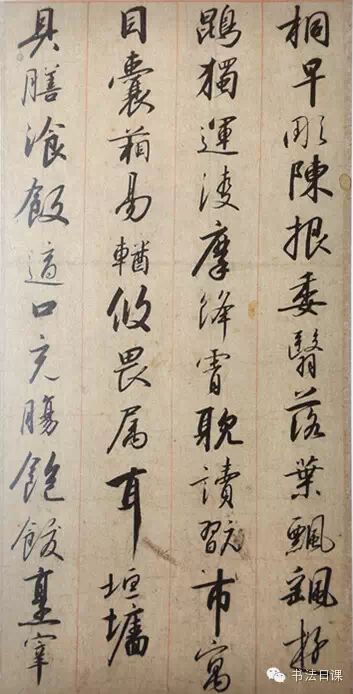 桐早彫陳根委翳落葉飄颻游
鵾獨運凌摩絳霄耽讀翫市寓
目囊葙易輶攸畏属耳垣墻
具膳飡飯適口充腸飽飫烹宰
书法日课